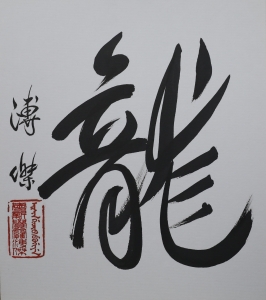 龍
溥傑